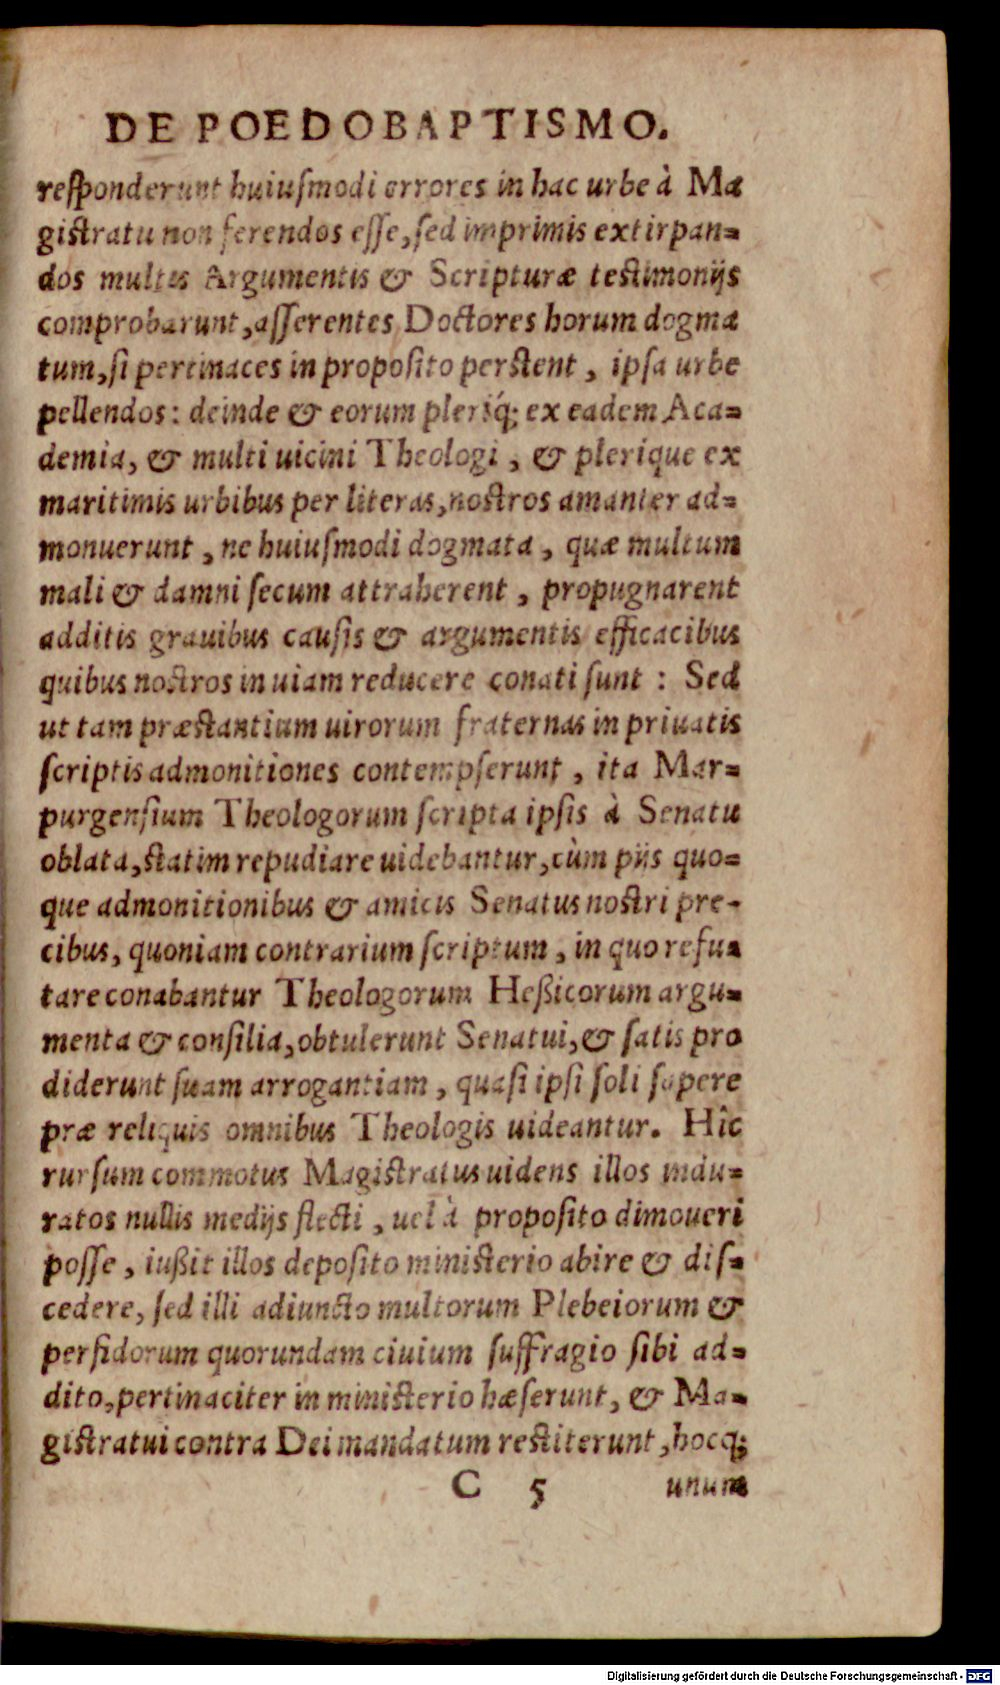 DE POEDOBAPTISMO.
responderunt huiuſmodi errores in hac urbe à Ma
giſtratu non ferendos eſſe, ſed imprimis extirpan=
dos multis Argumentis & Scripturæ teſtimonijs
comprobarunt, aſſerentes Doctores horum dogma
tum, ſi pertinaces in propoſito perſtent, ipſa urbe
pellendos: deinde & eorum pleriq́; ex eadem Aca=
demia, & multi uicini Theologi, & plerique ex
maritimis urbibus per literas, noſtros amanter ad=
monuerunt, ne huiuſmodi dogmata, quæ multum
mali & damni ſecum attraherent, propugnarent
additis grauibus cauſis & argumentis efficacibus
quibus noſtros in uiam reducere conati ſunt: Sed
ut tam præſtantium uirorum fraternas in priuatis
ſcriptis admonitiones contempſerunt, ita Mar=
purgenſium Theologorum ſcripta ipſis à Senatu
oblata, ſtatim repudiare uidebantur, cùm pijs quo=
que admonitionibus & amicis Senatus noſtri pre-
cibus, quoniam contrarium ſcriptum, in quo refu=
tare conabantur Theologorum Heßicorum argu=
menta & conſilia, obtulerunt Senatui, & ſatis pro
diderunt ſuam arrogantiam, quaſi ipſi ſoli ſapere
præ reliquis omnibus Theologis uideantur. Hîc
rurſum commotus Magiſtratus uidens illos indu=
ratos nullis medijs flecti, uel à propoſito dimoueri
poſſe, iußit illos depoſito miniſterio abire & diſ=
cedere, ſed illi adiuncto multorum Plebeiorum &
perfidorum quorundam ciuium ſuffragio ſibi ad=
dito, pertinaciter in miniſterio hæſerunt, & Ma=
giſtratui contra Dei mandatum reſtiterunt, hocq;
C 5 unum
Digitalisierung gefördert durch die Deutsche Forschungsgemeinschaft - DFG